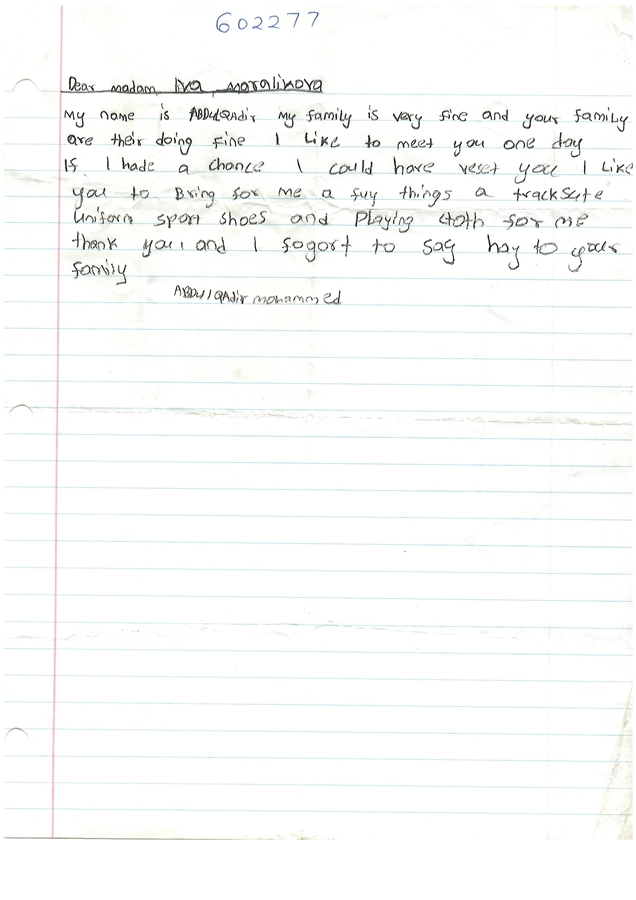 602277
Dear madam Iva maralikova
My name is ABDulQAdir My family is very fine and your family
are their doing fine I Like to meet you one day
If I hade a chance I could have veset you I Like
you to Bring for me a fuy things a trackSute
Uniform sport shoes and Playing cloth for me
thank you, and I fogort to say hay to your
family
ABDulQAdir mohammed